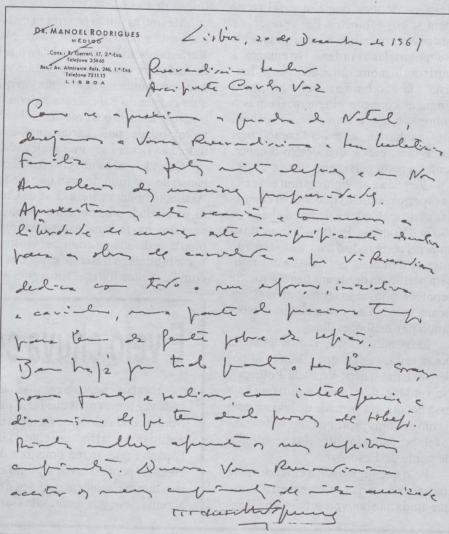 DR. MANOEL RODRIGUES
MÉDICO
Cons.: R. Garrett, 17, 2.º-Esq.
Telefone 35465
Res.: Av. Almirante Reis, 246, 1.º-Esq.
Telefone 721175
LISBOA
Lisboa, 20 de Dezembro de 1967
Reverendissimo Senhor
Arcipreste Carlos Vaz
Como se aproxima a quadra do Natal,
desejamos a Vossa Reverendissima e
Familia umas festas muito alegres e um Novo
Ano cheio das maiores prosperidades.
Aproveitamos esta e tomamos a
liberdade de enviar este insignificante
para as obras de a que Vª Reverendissima
dedica com todo o seu esforço, iniciativa
e carinho, uma parte do precioso tempo
para bem da gente pobre da região.
Bem haja por tudo quanto o seu bom coração
possa fazer e realizar, com inteligencia e
dinamismo de que tem dado provas de sobejo.
Minha mulher apresenta os seus respeitosos
cumprimentos. Queira Vossa Reverendissima
aceitar os meus cumprimentos de muita amizade